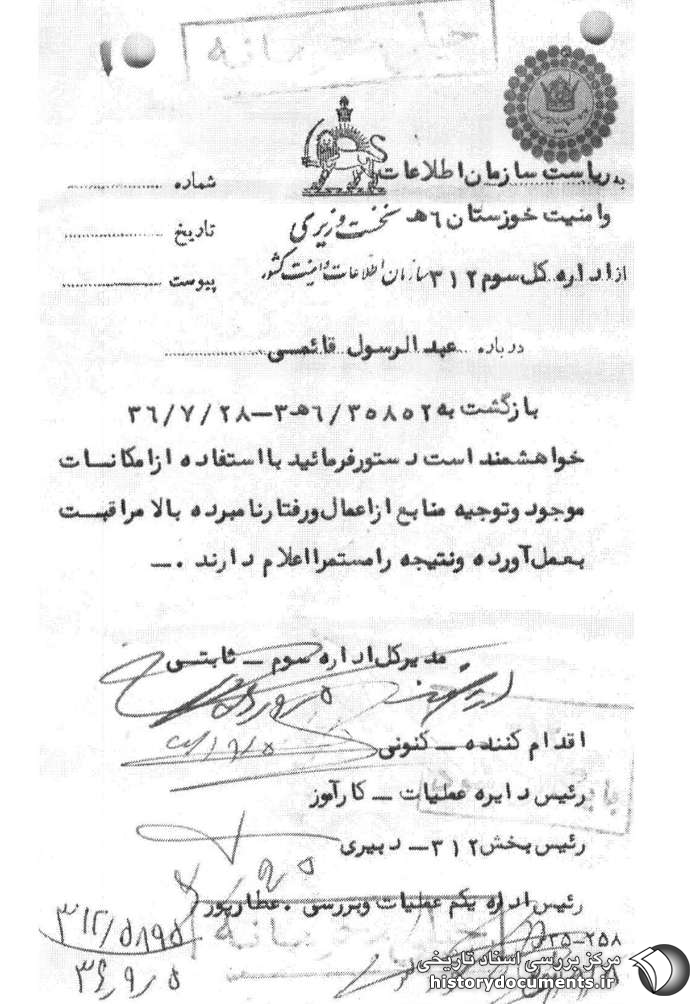 به ریاست سازمان اطلاعات
وامنیت خوزستان ۶هـ
نخست وزیری
از اداره کل سوم ۳۱۲
سازمان اطلاعات و امنیت کشور
شماره
تاریخ
پیوست
درباره عبدالرسول قائمی
بازگشت به ۳۵۸۵۲/۶هـ۳–۳۶/۷/۲۸
خواهشمند است دستورفرمائید بااستفاده ازامکانات
موجود وتوجیه منابع ازاعمال ورفتارنامبرده بالا مراقبت
بعمل آورده ونتیجه رامستمرااعلام دارند .–
مدیرکل اداره سوم – ثابتی
اقدام کننده – کنونی
رئیس دایره عملیات – کارآموز
رئیس بخش ۳۱۲– دبیری
رئیس اداره یکم عملیات وبررسی . عطارپور
۳۱۲/۵۸۹۵
۳۶,۹,۵
۳۵-۲۵۸
مرکز بررسی اسناد تاریخی
historydocuments.ir